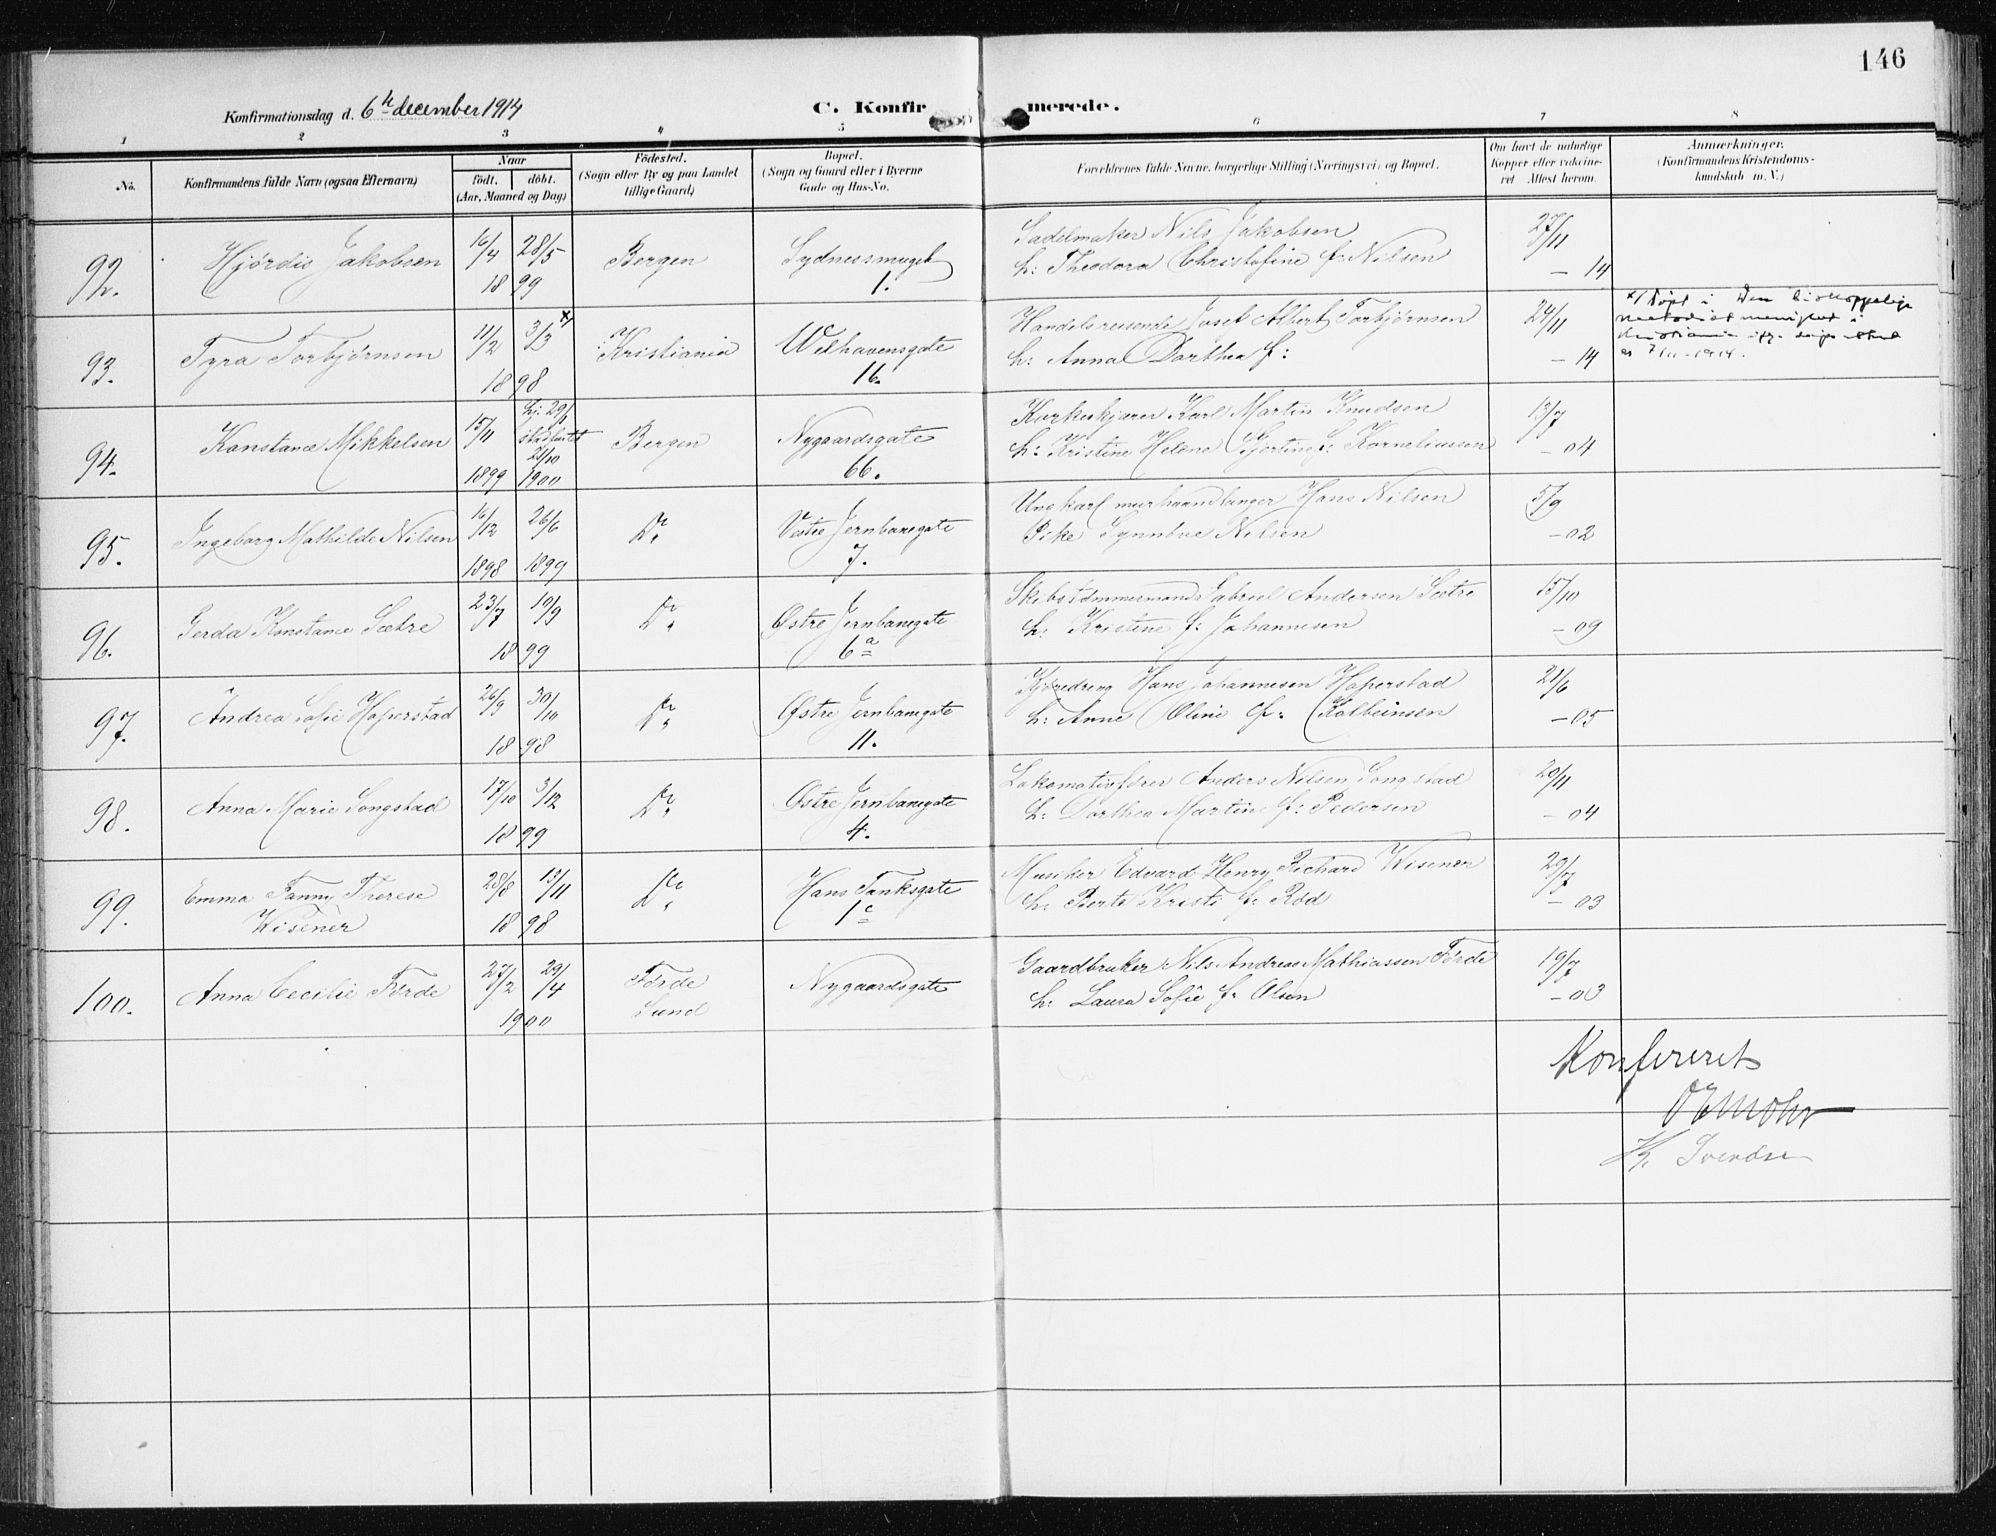 146
Konfirmationsdag d. 6te december 1914
C. Konfirmerede.
1 2 3 4 5 6 7 8
No.
Konfirmandens fulde Navn (ogsaa Efternavn)
Naar
födt. döbt.
(Aar, Maaned og Dag)
Födested.
(Sogn eller By og paa Landet
tillige Gaard)
Bopæl.
(Sogn og Gaard eller i Byerne
Gade og Hus-No.
Forældrenes fulde Navne, borgerlige Stilling (Næringsvei) og Bopæl.
Om havt de naturlige
Kopper eller vakcine-
ret Attest herom.
Anmærkninger.
(Konfirmandens Kristendoms-
kundskab m. V.)
92. Hjördis Jakobsen 16/4 28/5 1899 Bergen Sydnessmuget 1.
Sadelmaker Nils Jakobsen 27/11
h: Theodora Christofine f: Nilsen - 14
93. Tyra Torbjørnsen 11/2 3/3 x) 1898 Kristiania Welhavensgate 16.
Handelsreisende Josef Albert Torbjørnsen 24/11
h: Anna Dorthea f: - 14
x) Døpt i Den biskoppelige
metodistmenighet i
Kristiania
94. Konstance Mikkelsen 15/11 1899 hj: 29/1 stadfæstet 21/10 1900 Bergen Nygaardsgate 66.
Korkskjærer Karl Martin Knudsen 13/7
h: Kristine Helene f: Korneliussen - 04
95. Ingeborg Mathilde Nilsen 16/12 1898 26/6 1899 Do. Vestre Jernbanegate 7.
Ungkarl murhaandlanger Hans Nilsen 5/9
Pike Synnøve Nilsen - 02
96. Gerda Konstance Sætre 23/7 19/9 1899 Do. Østre Jernbanegate 6a
Skibstømmermand Gabriel Andersen Sætre 15/10
h: Kristine f: Johannesen - 09
97. Andrea Sofie Hoperstad 26/9 30/10 1898 Do. Østre Jernbanegate 11.
Kjøredreng Hans Johannesen Hoperstad 21/6
h: Anne Oline f: Kolbeinsen - 05
98. Anna Marie Songstad 17/10 3/12 1899 Do. Østre Jernbanegate 4.
Lokomotivfører Anders Nilsen Songstad 20/11
h: Dorthea Martine f: Pedersen - 04
99. Emma Fanny Therese Wisener 28/8 13/11 1898 Do. Hans Tanksgate 1c
Musiker Edvard Henry Richard Wisener 29/7
h: Berte Kristi f: Röd - 03
100. Anna Cecilie Förde 27/2 29/4 1900 Förde Sund Nygaardsgate
Gaardbruker Nils Andreas Mathiassen Förde 19/7
h: Laura Sofie f: Olsen - 03
Konfereret
OEMohr
K. Svendse